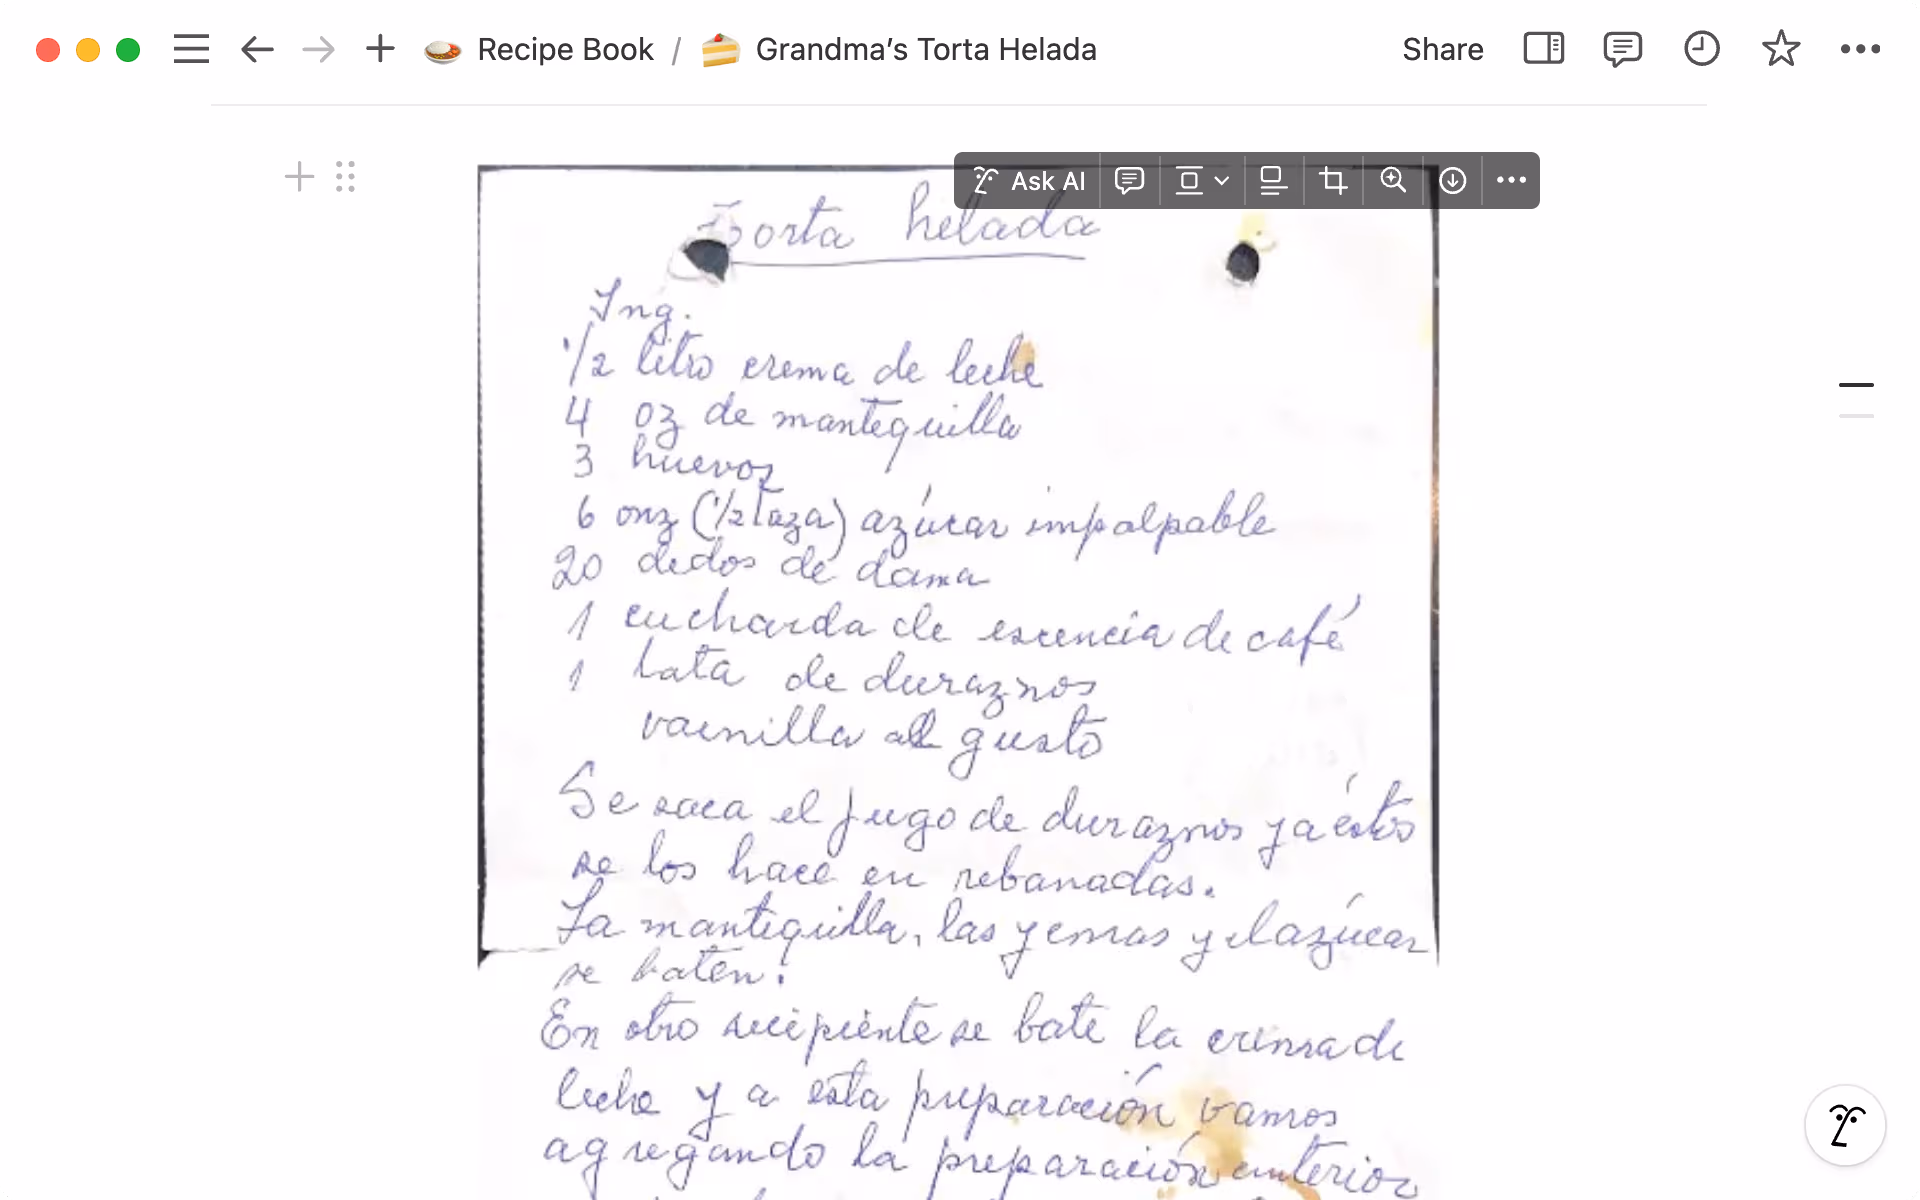 Recipe Book / Grandma’s Torta Helada
Share
Ask AI
Torta helada
Ing.
1/2 litro crema de leche
4 oz de mantequilla
3 huevos
6 onz (1/2 taza) azúcar impalpable
20 dedos de dama
1 cucharda de escencia de café
1 lata de duraznos
vainilla al gusto
Se saca el jugo de duraznos y a éstos
se los hace en rebanadas.
La mantequilla, las yemas y el azúcar
se baten.
En otro recipiente se bate la crema de
leche y a esta preparación vamos
agregando la preparación anterior